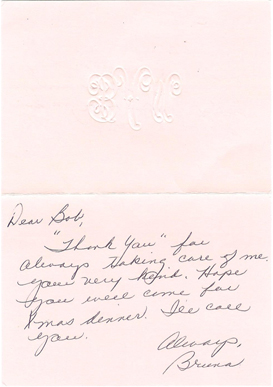 Dear Bob,
"Thank You" for
always taking care of me.
your very kind. Hope
you will come for
Xmas dinner. I'll call
you.
Always,
Bruna